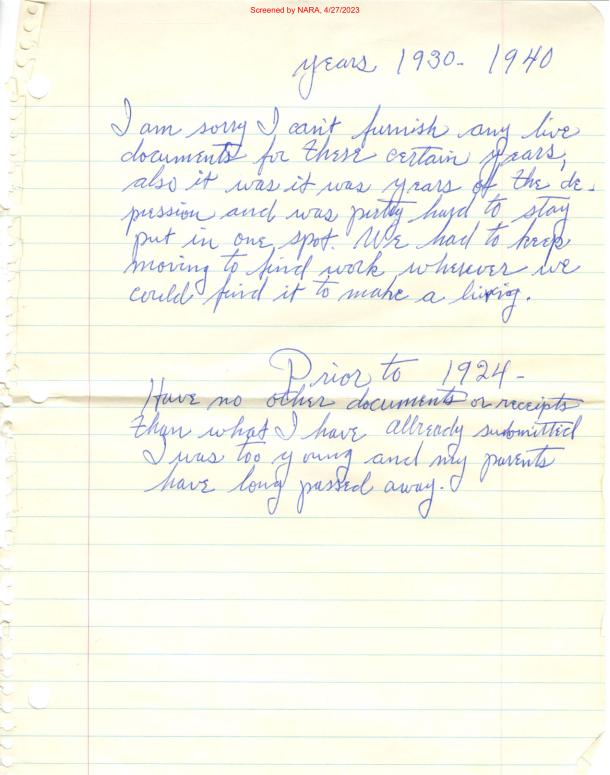 Screened by NARA, 4/27/2023
years 1930- 1940
I am sorry I can't furnish any live
documents for these certain years,
also it was it was years of the de-
pression and was pretty hard to stay
put in one spot. We had to keep
moving to find work wherever we
could find it to make a living.
Prior to 1924-
Have no other documents or receipts
than what I have allready submitted
I was too young and my parents
have long passed away.